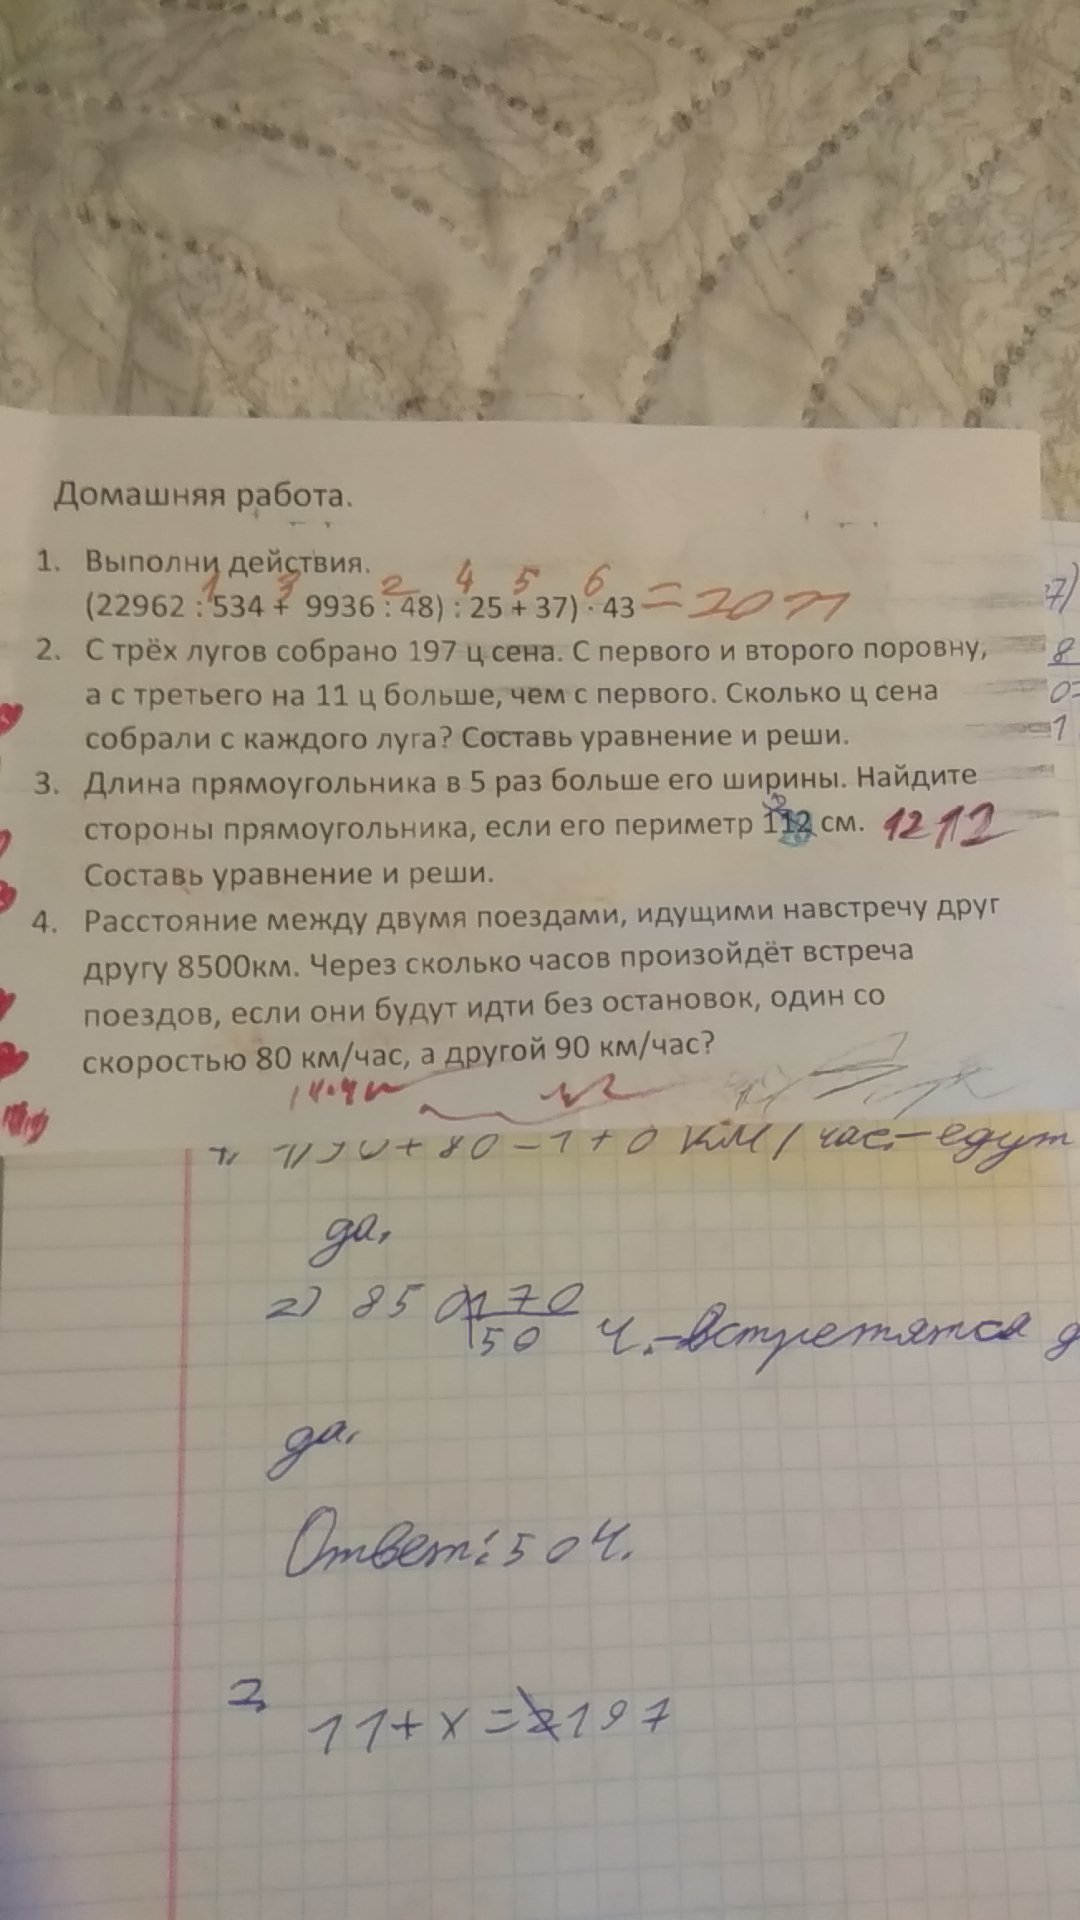 Домашняя работа.
1. Выполни действия.
1 3 2 4 5 6
(22962 : 534 + 9936 : 48) : 25 + 37) · 43 = 2021
2. С трёх лугов собрано 197 ц сена. С первого и второго поровну,
а с третьего на 11 ц больше, чем с первого. Сколько ц сена
собрали с каждого луга? Составь уравнение и реши.
3. Длина прямоугольника в 5 раз больше его ширины. Найдите
стороны прямоугольника, если его периметр 112 см. 1212
Составь уравнение и реши.
4. Расстояние между двумя поездами, идущими навстречу друг
другу 8500км. Через сколько часов произойдёт встреча
поездов, если они будут идти без остановок, один со
скоростью 80 км/час, а другой 90 км/час?
1) 90 + 80 - 170 км/час. - едут
да.
2) 850 170
50 ч. - встретятся
да.
Ответ: 50ч.
2
11 + х = 197
7)
8